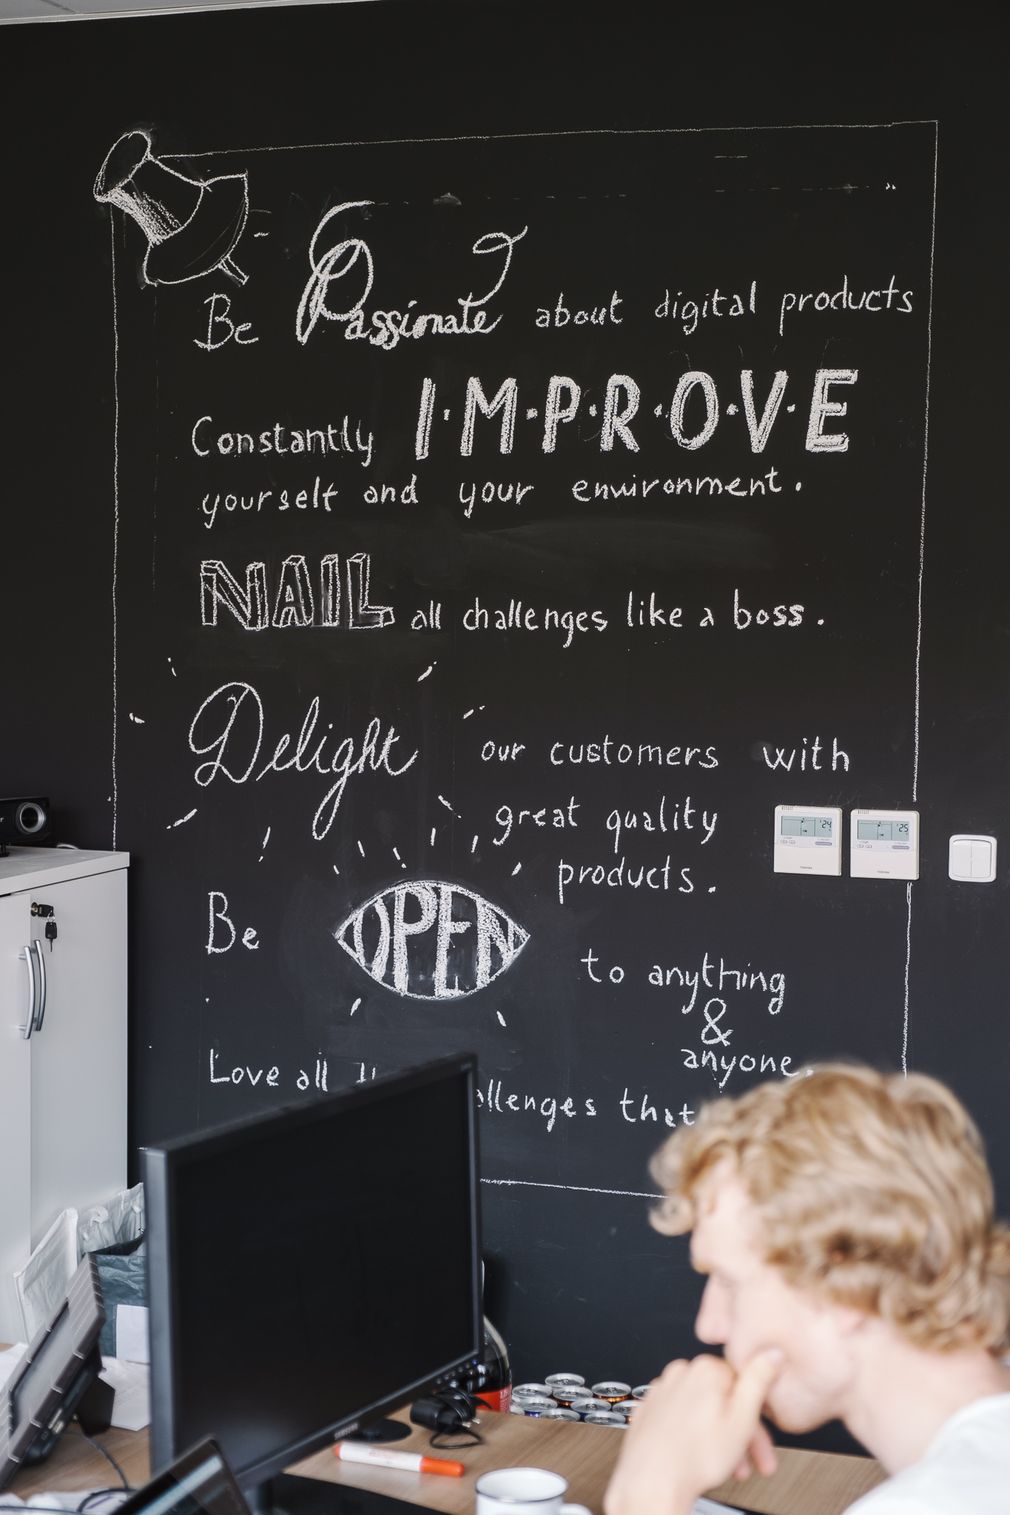 Be Passionate about digital products
Constantly I·M·P·R·O·V·E
yourself and your environment.
NAIL all challenges like a boss.
Delight our customers with
great quality
products.
Be OPEN to anything
&
anyone.
Love all
that